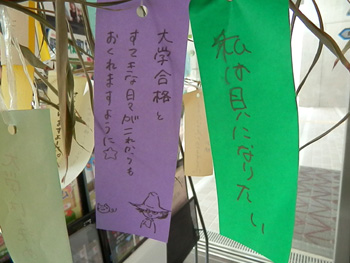 大学合格と
すてきな日々がこれからも
おくれますように☆
私は貝になりたい